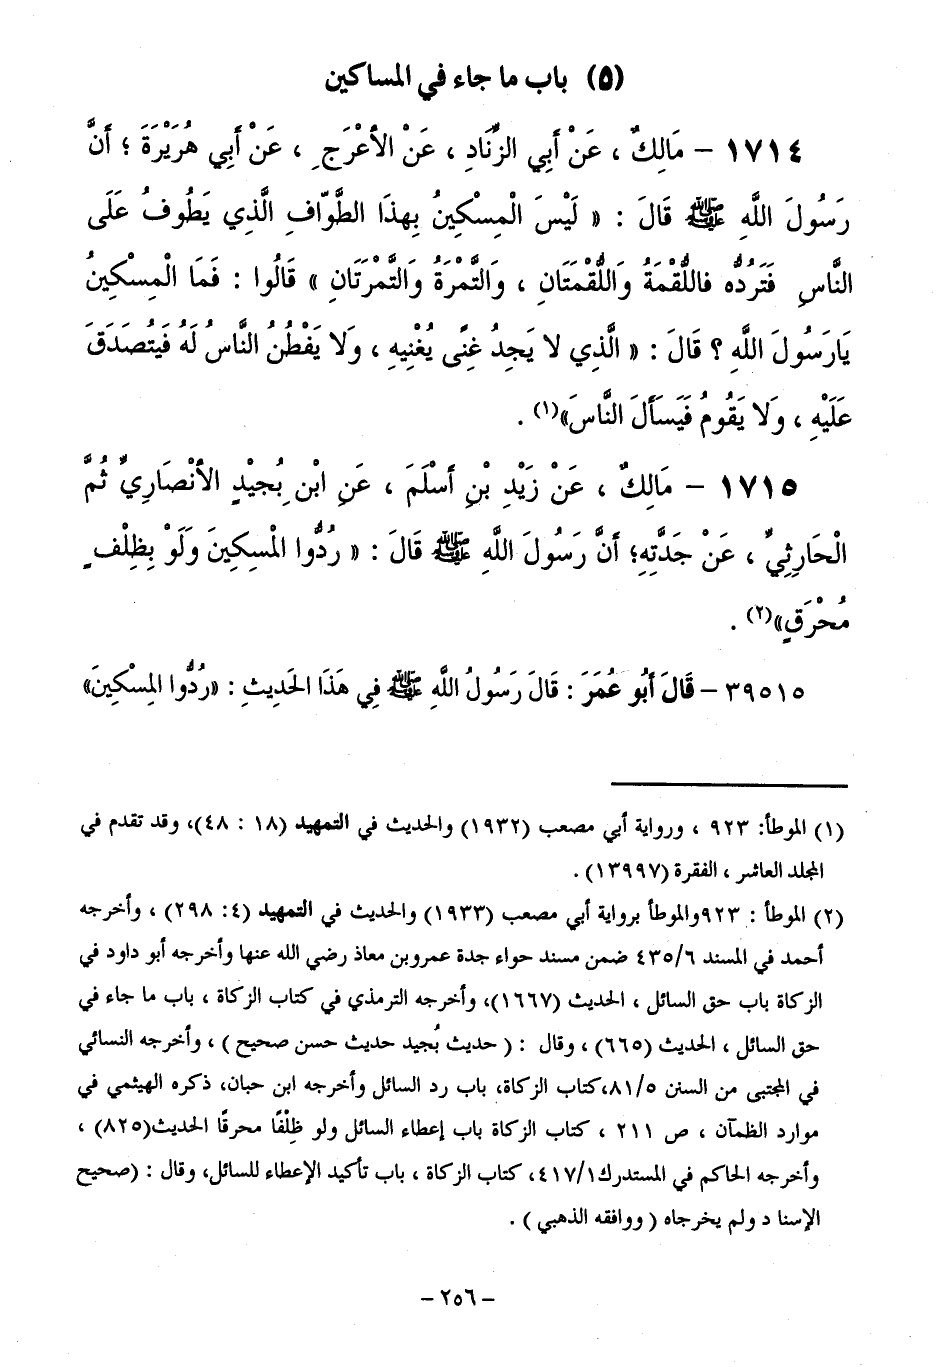 (٥) باب ما جاء في المساكين
١٧١٤ – مَالِكٌ ، عَنْ أَبِي الزِّنَادِ ، عَنْ الأَعْرَجِ ، عَنْ أَبِي هُرَيْرَةَ ؛ أَنَّ
رَسُولَ اللَّهِ ﷺ قَالَ : « لَيْسَ الْمِسْكِينُ بِهذَا الطَّوَّافِ الَّذِي يَطُوفُ عَلَى
النَّاسِ فَتَرُدُّه فاللُّقْمَةُ وَاللُّقْمَتَانِ ، وَالتَّمْرَةُ وَالتَّمْرَتَانِ » قَالُوا : فَمَا الْمِسْكِينُ
يَارَسُولَ اللَّهِ ؟ قَالَ : « الَّذِي لا يَجِدُ غِنًى يُغْنِيهِ ، وَلا يَفْطُنُ النَّاسُ لَهُ فَيُتَصَدَقَ
عَلَيْهِ ، وَلا يَقُومُ فَيَسَأَلَ النَّاسَ»(١) .
١٧١٥ – مَالِكٌ ، عَنْ زَيْدِ بْنِ أَسْلَمَ ، عَنِ ابْنِ بُجيْدٍ الأَنْصَارِيِّ ثُمَّ
الْحَارِثِيِّ ، عَنْ جَدَّتِهِ؛ أَنَّ رَسُولَ اللَّهِ ﷺ قَالَ : « رُدُّوا الْمسكِينَ وَلَوْ بِظِلْفٍ
مُحْرَقٍ»(٢) .
٣٩٥١٥ – قَالَ أَبُو عُمَرَ : قَالَ رَسُولُ اللَّهِ ﷺ فِي هَذَا الحَدِيثِ : «رُدُّوا المِسْكِينَ»
(١) الموطأ: ٩٢٣ ، ورواية أبي مصعب (١٩٣٢) والحديث في التمهيد (١٨ : ٤٨)، وقد تقدم في
المجلد العاشر ، الفقرة (١٣٩٩٧) .
(٢) الموطأ : ٩٢٣والموطأ برواية أبي مصعب (١٩٣٣) والحديث في التمهيد (٤: ٢٩٨) ، وأخرجه
أحمد في المسند ٤٣٥/٦ ضمن مسند حواء جدة عمروبن معاذ رضي الله عنها وأخرجه أبو داود في
الزكاة باب حق السائل ، الحديث (١٦٦٧)، وأخرجه الترمذي في كتاب الزكاة ، باب ما جاء في
حق السائل ، الحديث (٦٦٥) ، وقال : ( حديث بُجيد حديث حسن صحيح ) ، وأخرجه النسائي
في المجتبى من السنن ٨١/٥،كتاب الزكاة، باب رد السائل وأخرجه ابن حبان، ذكره الهيثمي في
موارد الظمآن ، ص ٢١١ ، كتاب الزكاة باب إعطاء السائل ولو ظِلْفًا محرقًا الحديث(٨٢٥) ،
وأخرجه الحاكم في المستدرك٤١٧/١، كتاب الزكاة ، باب تأكيد الإعطاء للسائل، وقال : (صحيح
الإسنا د ولم يخرجاه ( ووافقه الذهبي ) .
– ٢٥٦ –